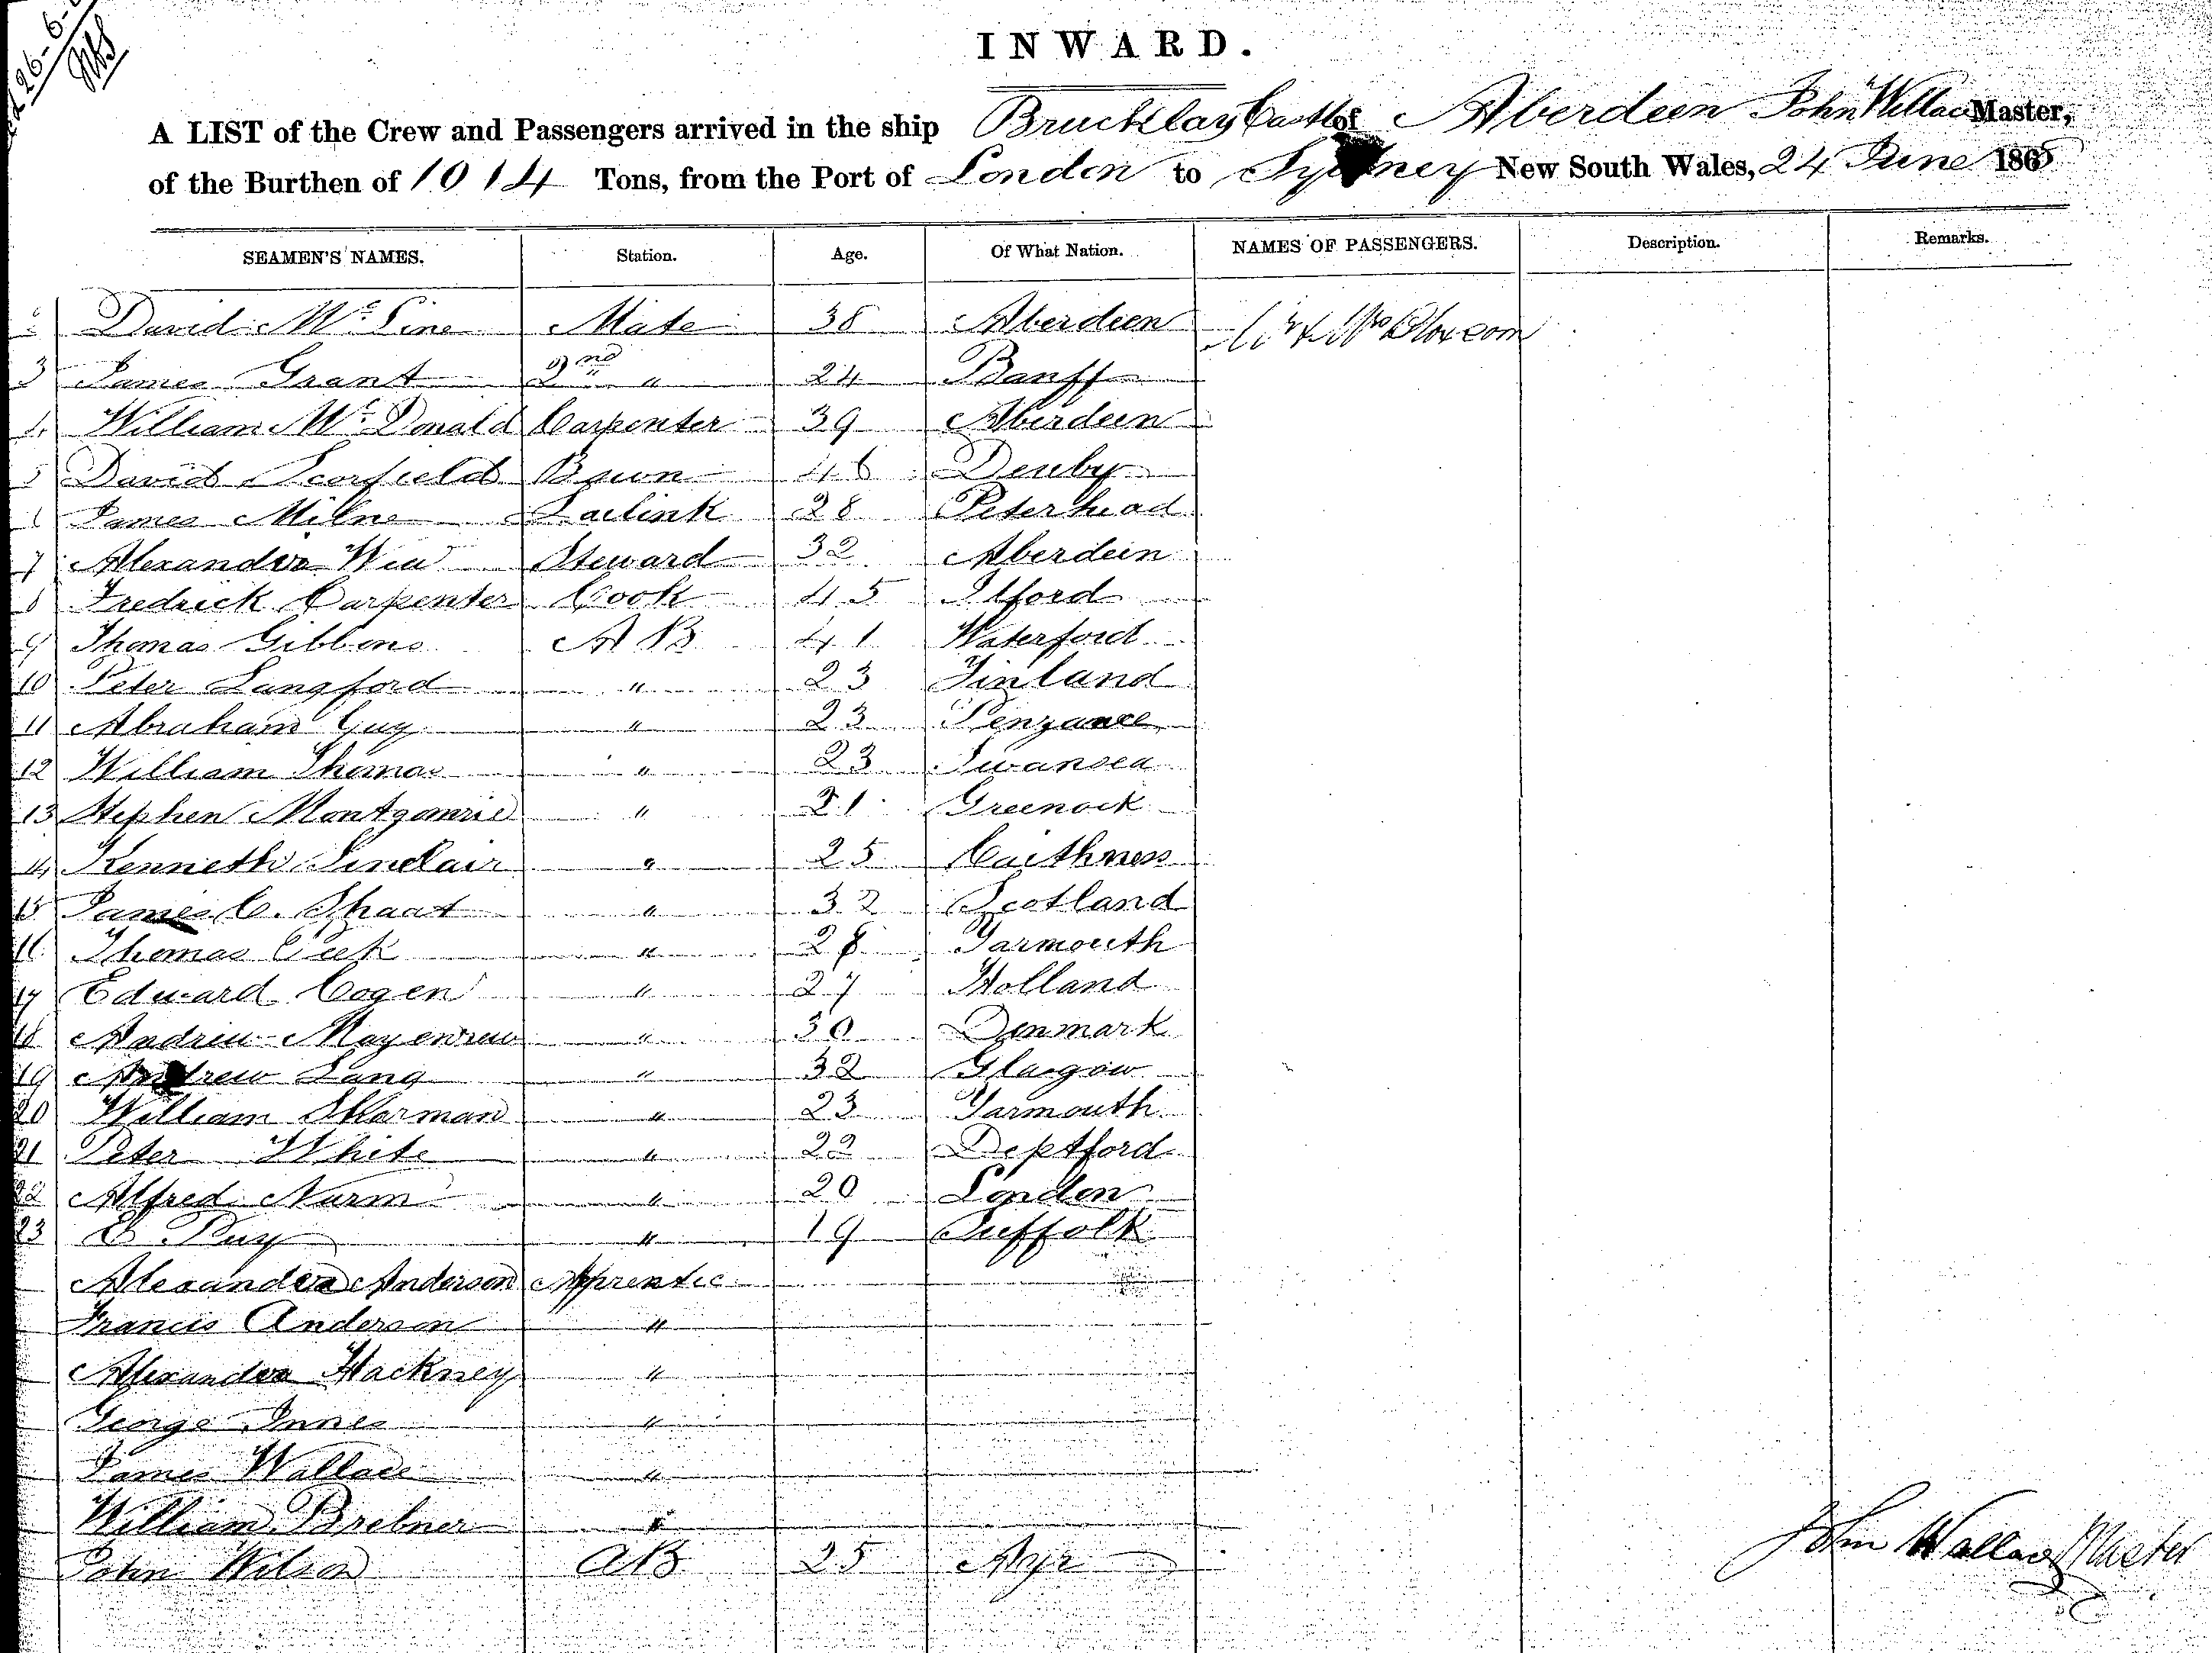 26-6-
INWARD.
A LIST of the Crew and Passengers arrived in the ship Brucklay Castle of Aberdeen John Wallace Master,
of the Burthen of 1014 Tons, from the Port of London to Sydney New South Wales, 24 June 1865
SEAMEN'S NAMES. Station. Age. Of What Nation. NAMES OF PASSENGERS. Description. Remarks.
David Mate 38 Aberdeen
3 James Grant 2nd " 24 Banff
4 William McDonald Carpenter 39 Aberdeen
5 David Scorfield Bosun 46 Denby
6 James Milne Sailmk 28 Peterhead
7 Alexander Steward 32 Aberdeen
8 Fredrick Carpenter Cook 45 Ilford
9 Thomas Gibbons AB 41 Waterford
10 Peter Langford " 23 Finland
11 Abraham Guy " 23 Penzance
12 William Thomas " 23 Swansea
13 Stephen Montgomrie " 21 Greenock
14 Kenneth Sinclair " 25 Caithness
15 James C. Shaat " 32 Scotland
16 Thomas " 28 Yarmouth
17 Edward Cogen " 27 Holland
18 Andrew " 30 Denmark
19 Andrew Lang " 32 Glasgow
20 William Sharman " 23 Yarmouth
21 Peter White " 22 Deptford
22 Alfred Nurm " 20 London
23 " 19 Suffolk
Alexander Anderson Apprentic
Francis Anderson "
Alexander Hackney "
George Innes "
James Wallace "
William Brebner "
John Wilson AB 25 Ayr
John Wallace Master